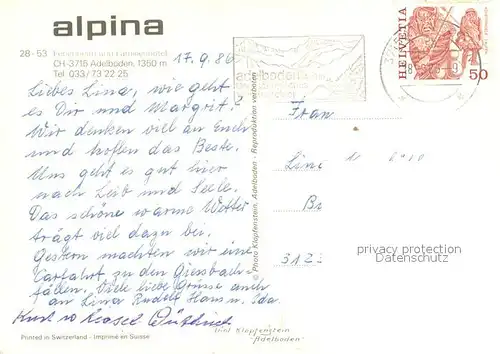 alpina
28-53 Ferienheim und Familienhotel
CH-3715 Adelboden, 1350 m
Tel 033/73 22 25
17.9.86
Liebes Lina, wie geht
es Dir und Margrit?
Wir denken viel an Euch
und hoffen das Beste.
Uns geht es gut hier
nach Leib und Seele.
Das schöne warme Wetter
trägt viel dazu bei.
Gestern machten wir eine
Carfahrt zu den Giessbach-
fällen. Viele liebe Grüsse auch
an Lina Rudolf Hans u. Ida.
Kurt
Printed in Switzerland - Imprimé en Suisse
© Photo Klopfenstein, Adelboden - Reproduktion verboten
adelboden
HELVETIA
50
Frau
privacy protection
Datenschutz
Klopfenstein
"Adelboden"